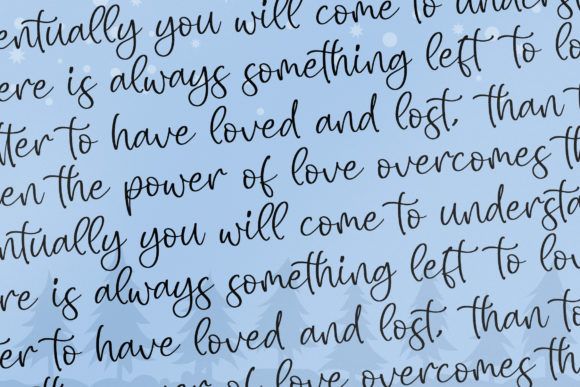 entually you will come to understa
ere is always something left to lo
tter to have loved and lost, than to
en the power of love overcomes th
ntually you will come to understa
re is always something left to lov
ter to have loved and lost, than to
the power of love overcomes th